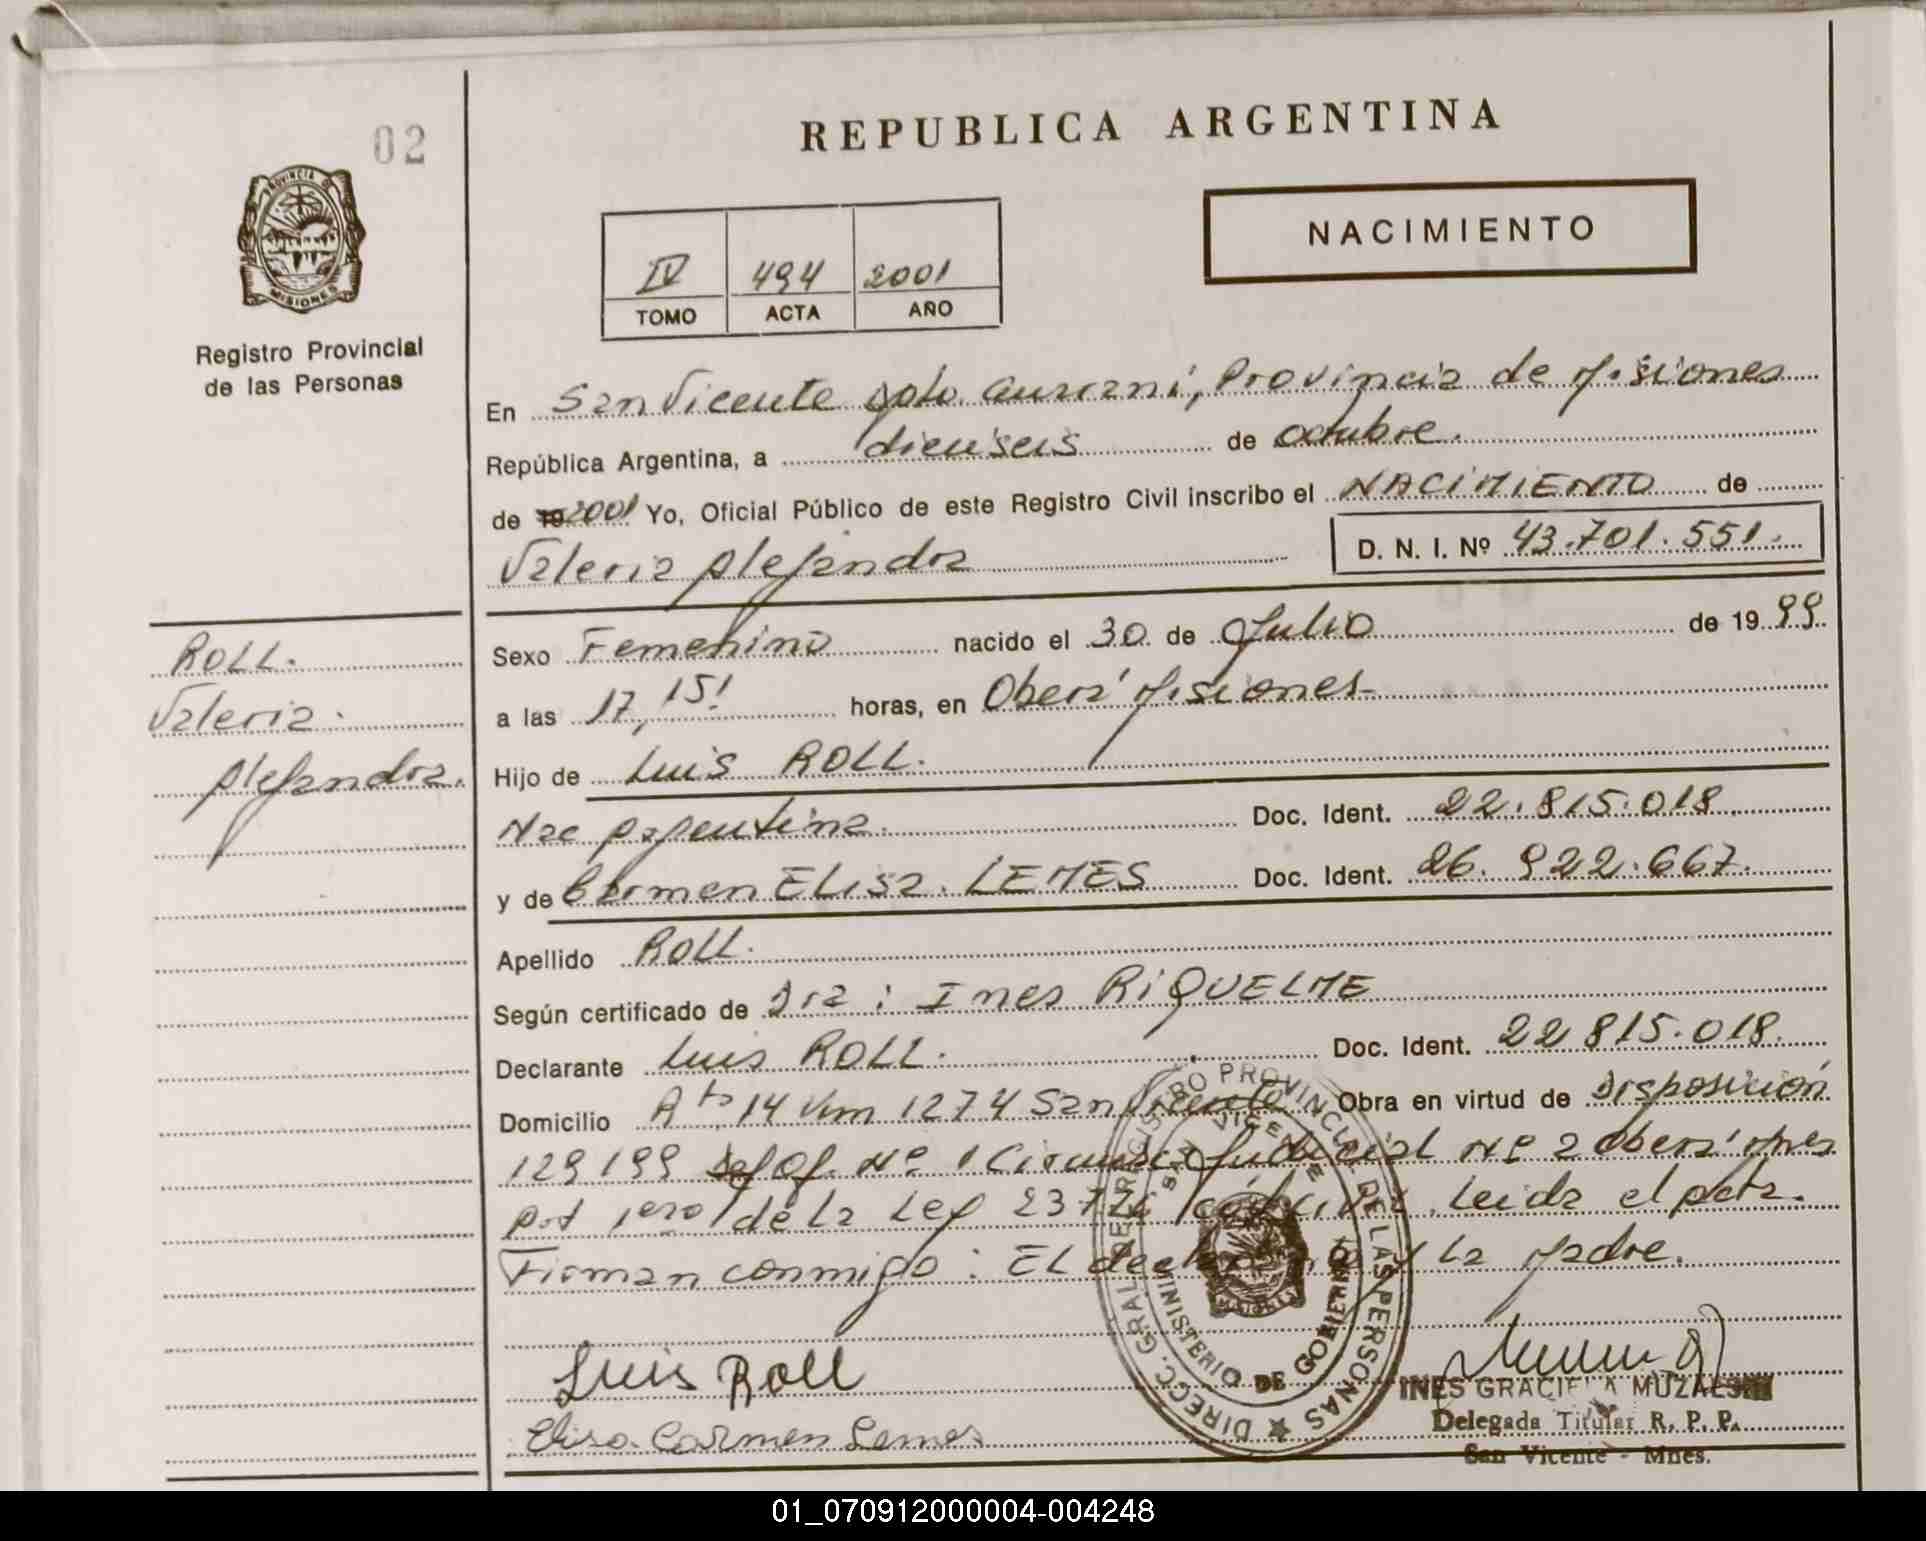 02
REPUBLICA ARGENTINA
PROVINCIA DE
MISIONES
NACIMIENTO
IV 494 2001
TOMO ACTA AÑO
Registro Provincial
de las Personas
En San Vicente Dpto. Guaraní, Provincia de Misiones
República Argentina, a dieciseis de octubre.
de 19 2001 Yo, Oficial Público de este Registro Civil inscribo el NACIMIENTO de
Valeria Alejandra D. N. I. Nº 43.701.551.
ROLL.
Valeria.
Alejandra.
Sexo Femenino nacido el 30 de Julio de 1999
a las 17,15! horas, en Oberá Misiones
Hijo de Luis ROLL.
Nac Argentina. Doc. Ident. 22.815.018
y de Carmen ELisa. LEMES Doc. Ident. 26.922.667.
Apellido ROLL.
Según certificado de Dra: Ines RiQUELME
Declarante Luis ROLL. Doc. Ident. 22815.018.
Domicilio Rta 14 Km 1274 San Vicente Obra en virtud de Disposición
129199 Nº 1 Judicial Nº 2 Oberá Mnes
Art 1ero de La Ley Leida el Acta.
Firman conmigo: EL declarante y La Madre.
Luis Roll
Elisa Carmen Lemes
DIRECC. GRAL. DE REGISTRO PROVINCIAL DE LAS PERSONAS
SAN VICENTE
MINISTERIO DE GOBIERNO
INES GRACIELA
Delegada Titular R. P. P.
San Vicente - Mnes.
01_070912000004-004248